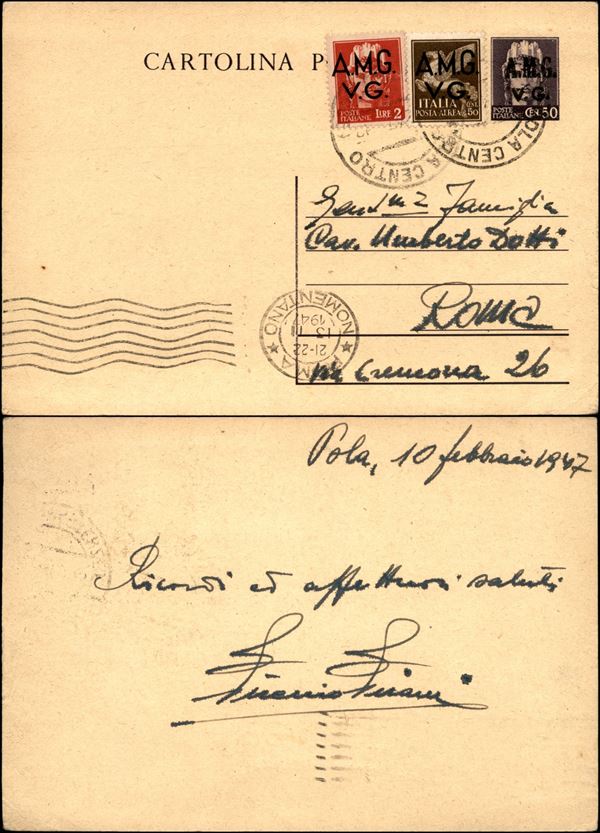 CARTOLINA P
A.M.G.
V.G.
POSTE ITALIANE LIRE 2
A.M.G.
V.G.
ITALIA
POSTA AEREA CENT. 50
A.M.G.
V.G.
POSTE ITALIANE CENT. 50
A CENTRO
POLA CENTRO
Famiglia
Cav. Umberto Dotti
Roma
via Cremona 26
ROMA NOMENTANO
21-22
13 II
1947
Pola, 10 febbraio 1947
Ricordi ed affettuosi saluti